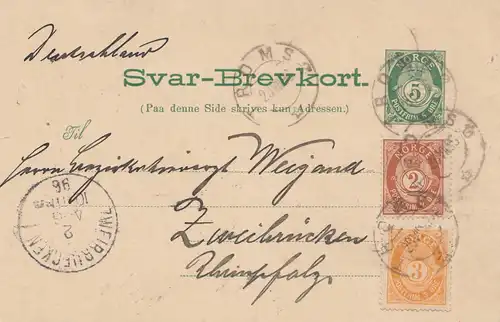 Deutschland
TROMSØ
NORGE
5
POSTFRIM. 5 ØRE
Svar-Brevkort.
(Paa denne Side skrives kun Adressen.)
Til
Herrn Bezirkstierarzt Weigand
NORGE
2
Zweibrücken
Rheinpfalz.
ZWEIBRUECKEN
2
96
NORGE
3